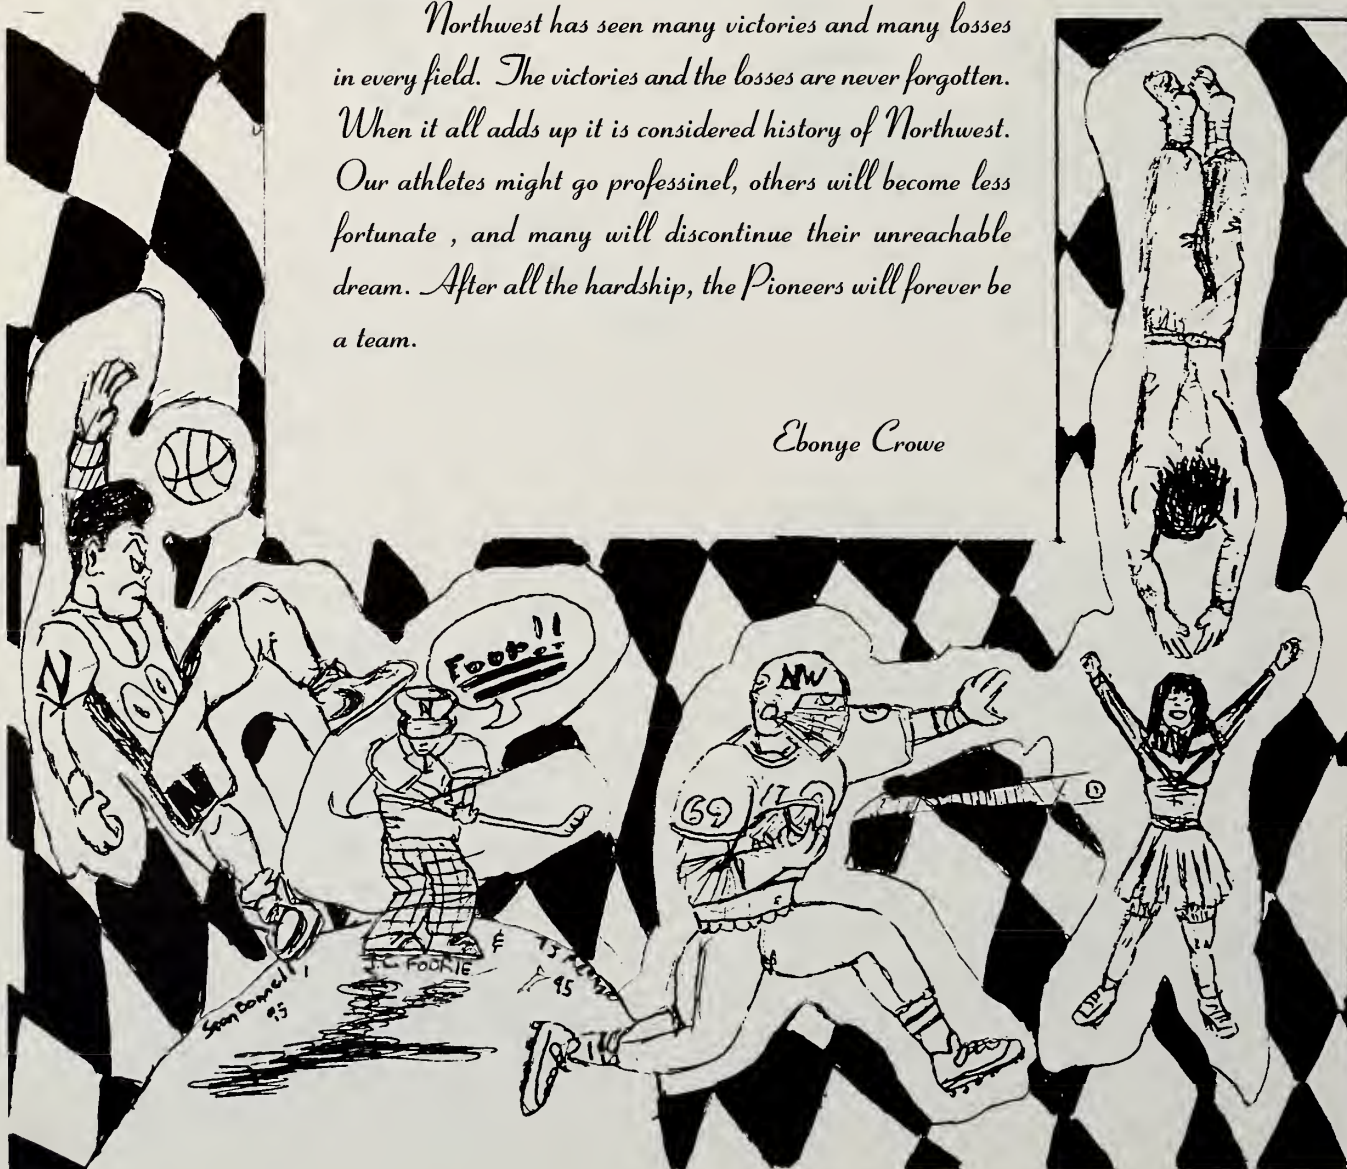 Northwest has seen many victories and many losses
in every field. The victories and the losses are never forgotten.
When it all adds up it is considered history of Northwest.
Our athletes might go professinel, others will become less
fortunate , and many will discontinue their unreachable
dream. After all the hardship, the Pioneers will forever be
a team.
Ebonye Crowe
N
N
N
NW
69
J.C. FOORIE
95
95